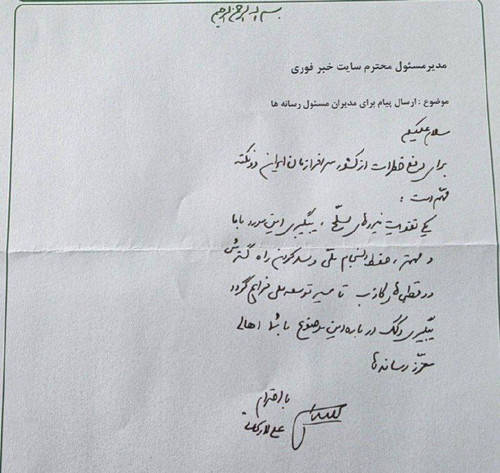 بسم الله الرحمن الرحیم
مدیرمسئول محترم سایت خبر فوری
موضوع : ارسال پیام برای مدیران مسئول رسانه ها
سلام علیکم
برای دفع خطرات از کشور سرافرازمان ایران دو نکته
مهم است :
یکی تقویت نیروهای مسلح، پیگیری این مورد با ما
و مهمتر، حفظ انسجام ملی و سد کردن راه گسترش
دوقطبی‌های کاذب تا مسیر توسعه ملی فراهم گردد
پیگیری و کمک در باره این موضوع با شما اهالی
معزز رسانه‌ها
با احترام
علی لاریجانی